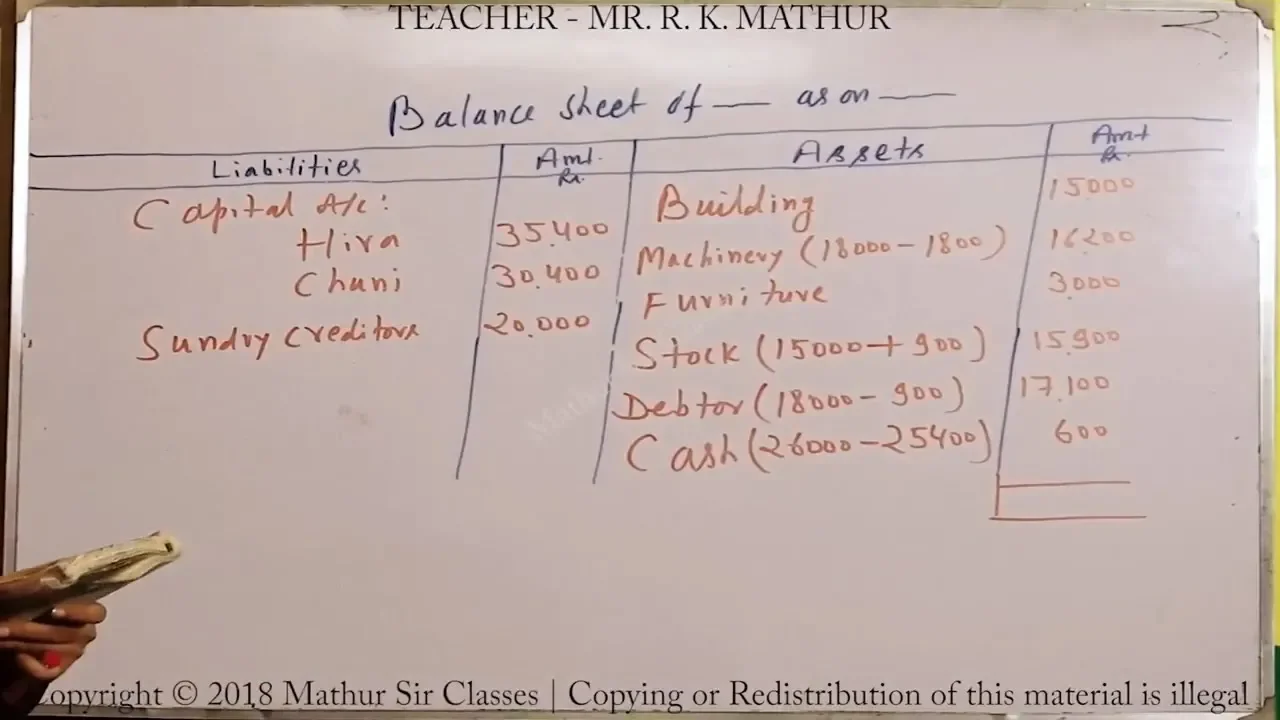 TEACHER - MR. R. K. MATHUR
Balance sheet of — as on —
Liabilities Amt. Rs. Assets Amt Rs.
Capital A/c: Building 15000
Hira 35.400 Machinery (18000-1800) 16200
Chuni 30.400 Furniture 3.000
Sundry Creditors 20.000 Stock (15000+900) 15.900
Debtor (18000-900) 17.100
Cash (26000-25400) 600
Copyright © 2018 Mathur Sir Classes | Copying or Redistribution of this material is illegal